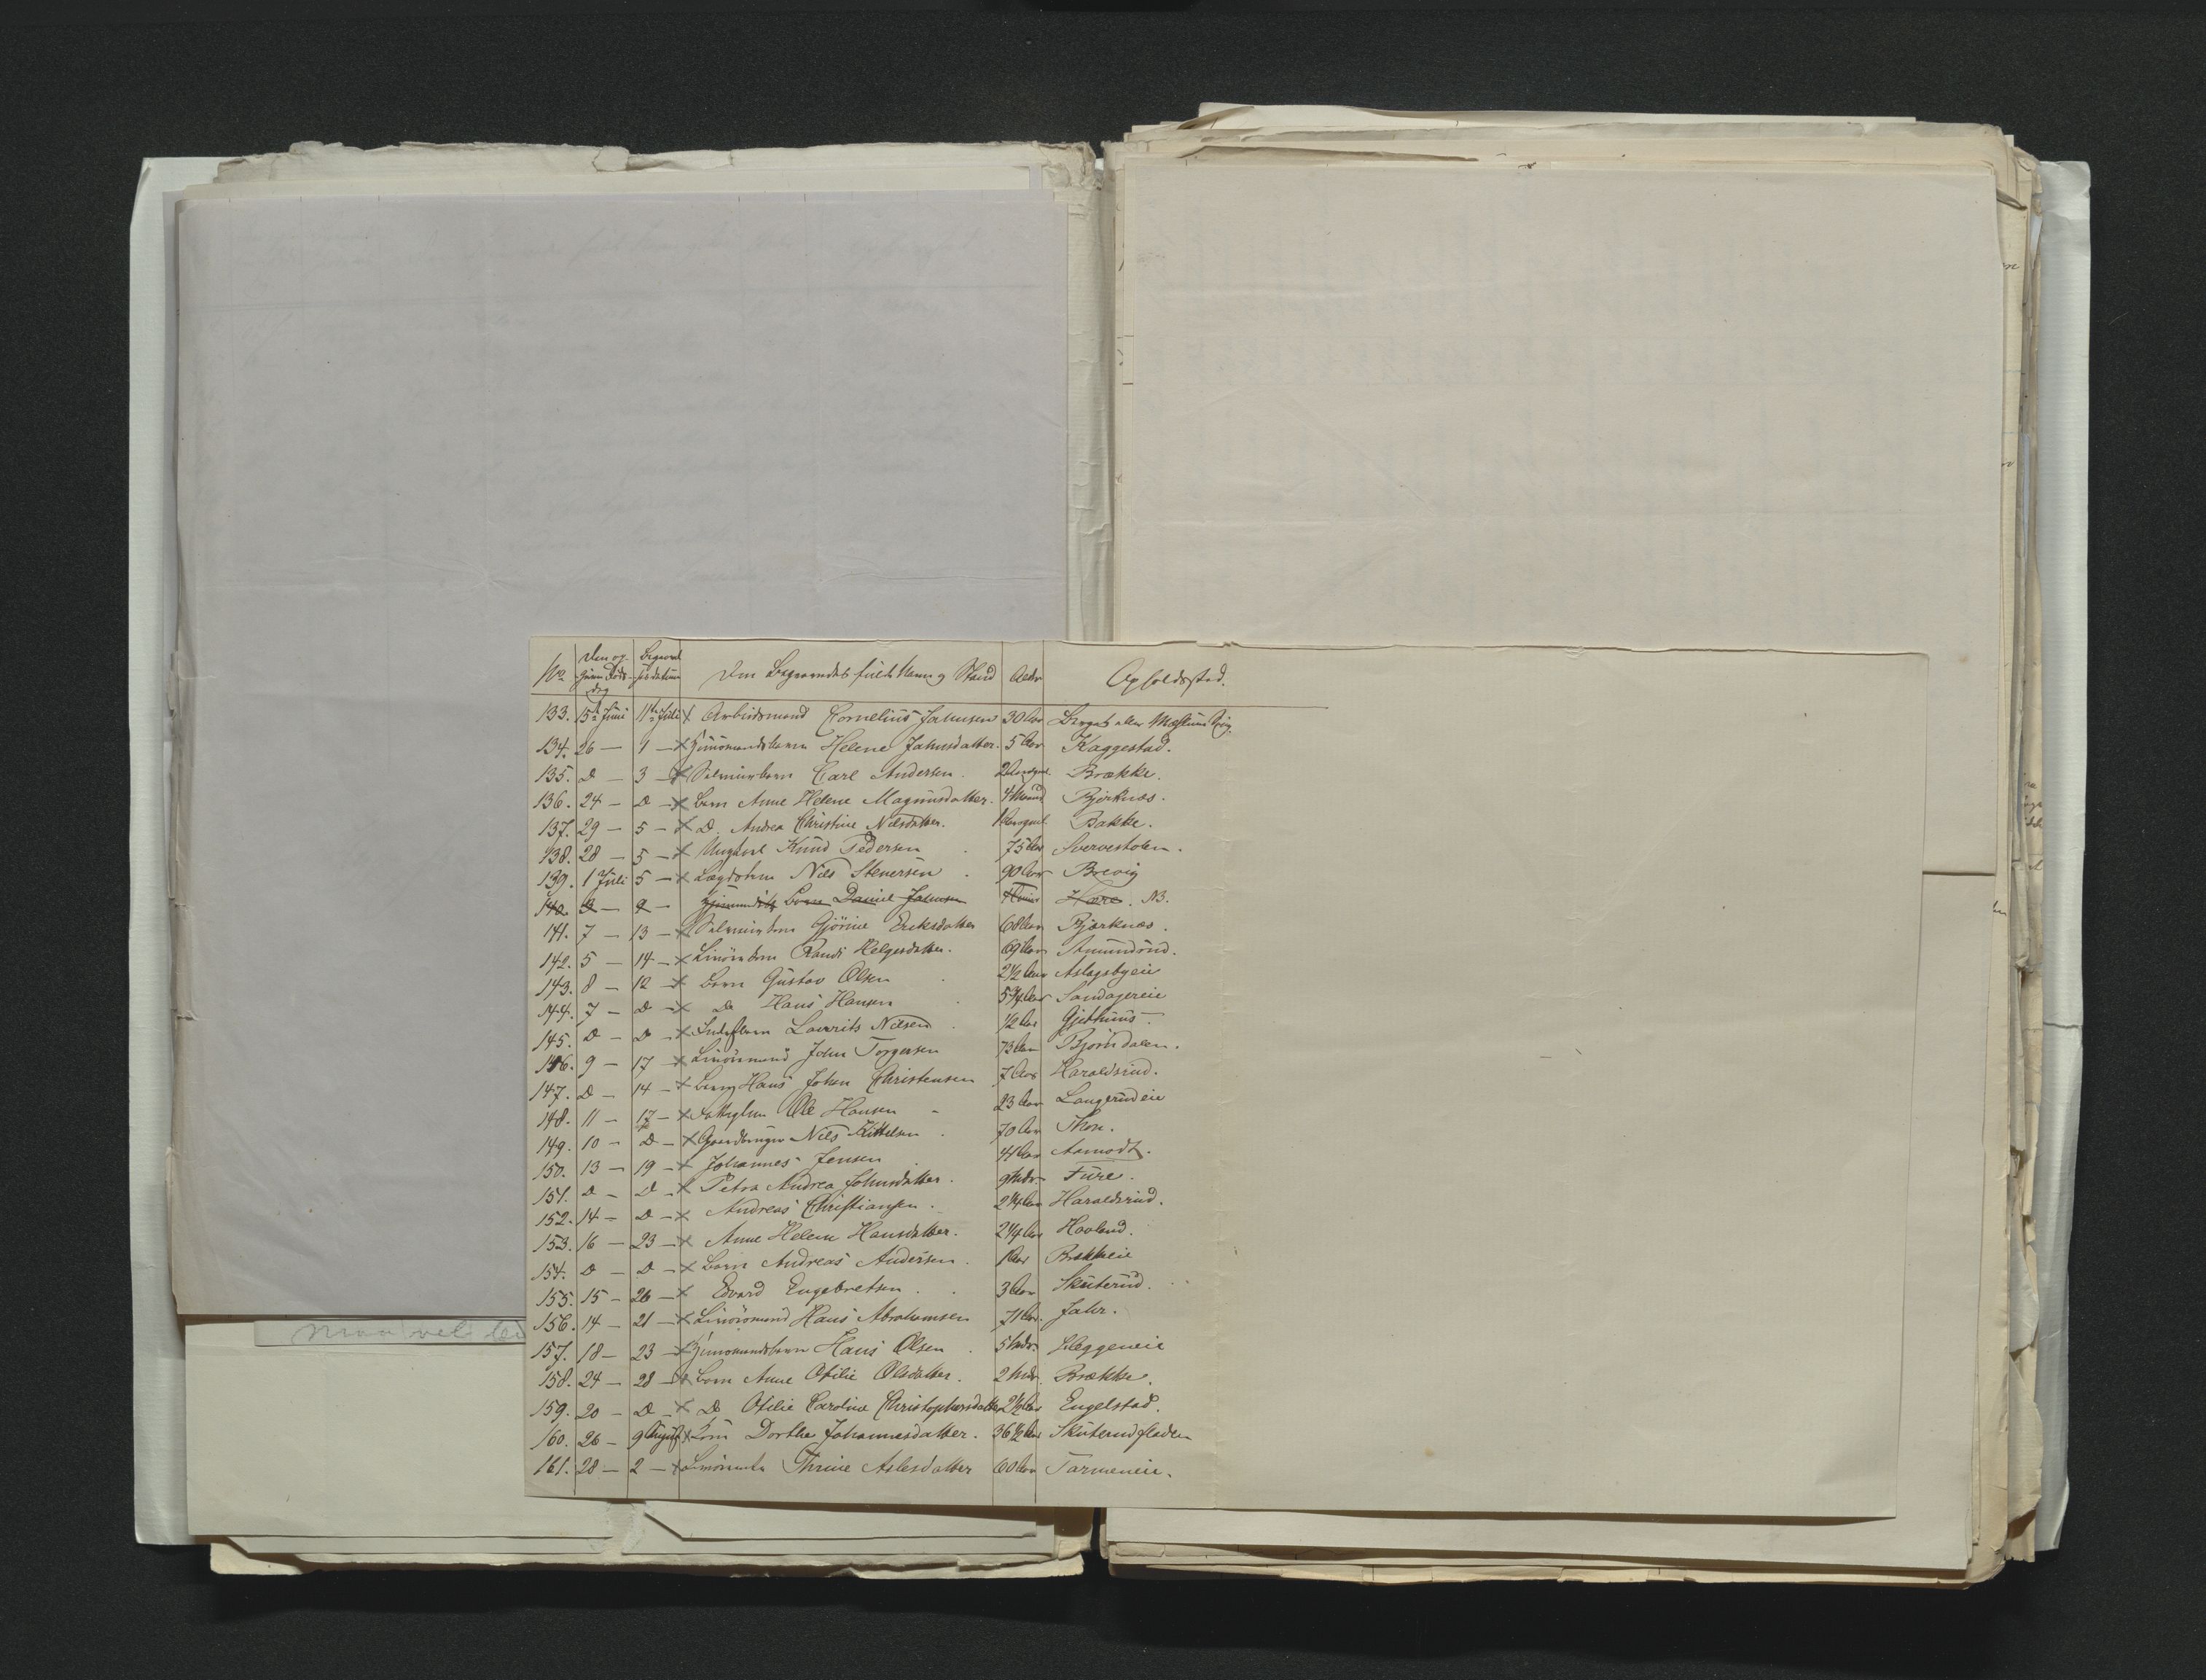 No | Den op- givne Døds- dag | Begravel- sesdatum | Den Begravedes fulde Navn og Stand | Alder | Opholdssted.
133. | 15de Juni | 11te Juli | x Arbeidsmand Cornelius Johnsen | 30 Aar |
134. | 26 — | 1 — | x Huusmandsbarn Helene Johnsdatter. | 5 Aar | Kaggestad.
135. | D — | 3 — | x Carl Andersen. | | Brække.
136. | 24 — | D — | x Barn Anne Helene Magnusdatter. | 4 Maand | Bjerknæs.
137. | 29 — | 5 — | x D. Andrea Christine Nilsdatter. | | Bakke.
138. | 28 — | 5 — | x Ungkarl Knud Pedersen | 75 Aar | Sververstolen.
139. | 1 Juli | 5 — | x Lægdslem Nils Stenersen | 90 Aar | Brevig
140. | 3 — | 9 — | Barn Daniel Johnsen | | Hære. NB.
141. | 7 — | 13 — | x Gjørine Eriksdatter | 68 Aar | Bjerknæs.
142. | 5 — | 14 — | x Randi Helgesdatter. | 69 Aar | Amundrud.
143. | 8 — | 12 — | x Barn Gustav Olsen | 2½ Aar | Aslagsbyeie
144. | 7 — | D — | x Do Hans Hansen | 5¾ Aar | Sandagereie
145. | D — | D — | x Laurits Nilsen | ½ Aar | Gjethuus
146. | 9 — | 17 — | x John Torgersen | 73 Aar | Bjørndalen.
147. | D — | 14 — | x Barn Hans Johan Christensen | 7 Aar | Haraldsrud.
148. | 11 — | 17 — | x Fattiglem Ole Hansen | 23 Aar | Langerudeie
149. | 10 — | D — | x Gaardbruger Nils Kittelsen | 70 Aar | Skou.
150. | 13 — | 19 — | x Johannes Jensen | | Aamodt.
151. | D — | D — | x Petra Andrea Johnsdatter. | 9 Mdr. | Fure.
152. | 14 — | D — | x Andreas Christiansen. | 2¼ Aar | Haraldsrud.
153. | 16 — | 23 — | x Anne Helene Hansdatter. | 2¼ Aar | Hovland.
154. | D — | D — | x Barn Andreas Andersen. | 1 Aar | Brækkeie
155. | 15 — | 26 — | x Edvard Engebretsen | 3 Aar | Skuterud.
156. | 14 — | 21 — | x Hans Abrahamsen | 71 Aar. | Jahr.
157. | 18 — | 23 — | x Huusmandsbarn Hans Olsen | 5 Mdr. | Kleggeneie
158. | 24 — | 28 — | x Barn Anne Otilie Olsdatter. | 2 Mdr. | Brække.
159. | 20 — | D — | x Do Otilie Caroline Christophersdatter | 2½ Aar | Engelstad.
160. | 26 — | 9 August | x Kone Dorthe Johannesdatter. | 36½ Aar | Skuterudfladen
161. | 28 — | 2 — | x Thrine Aslesdatter | 60 Aar | Tarmeneie.
maa vel